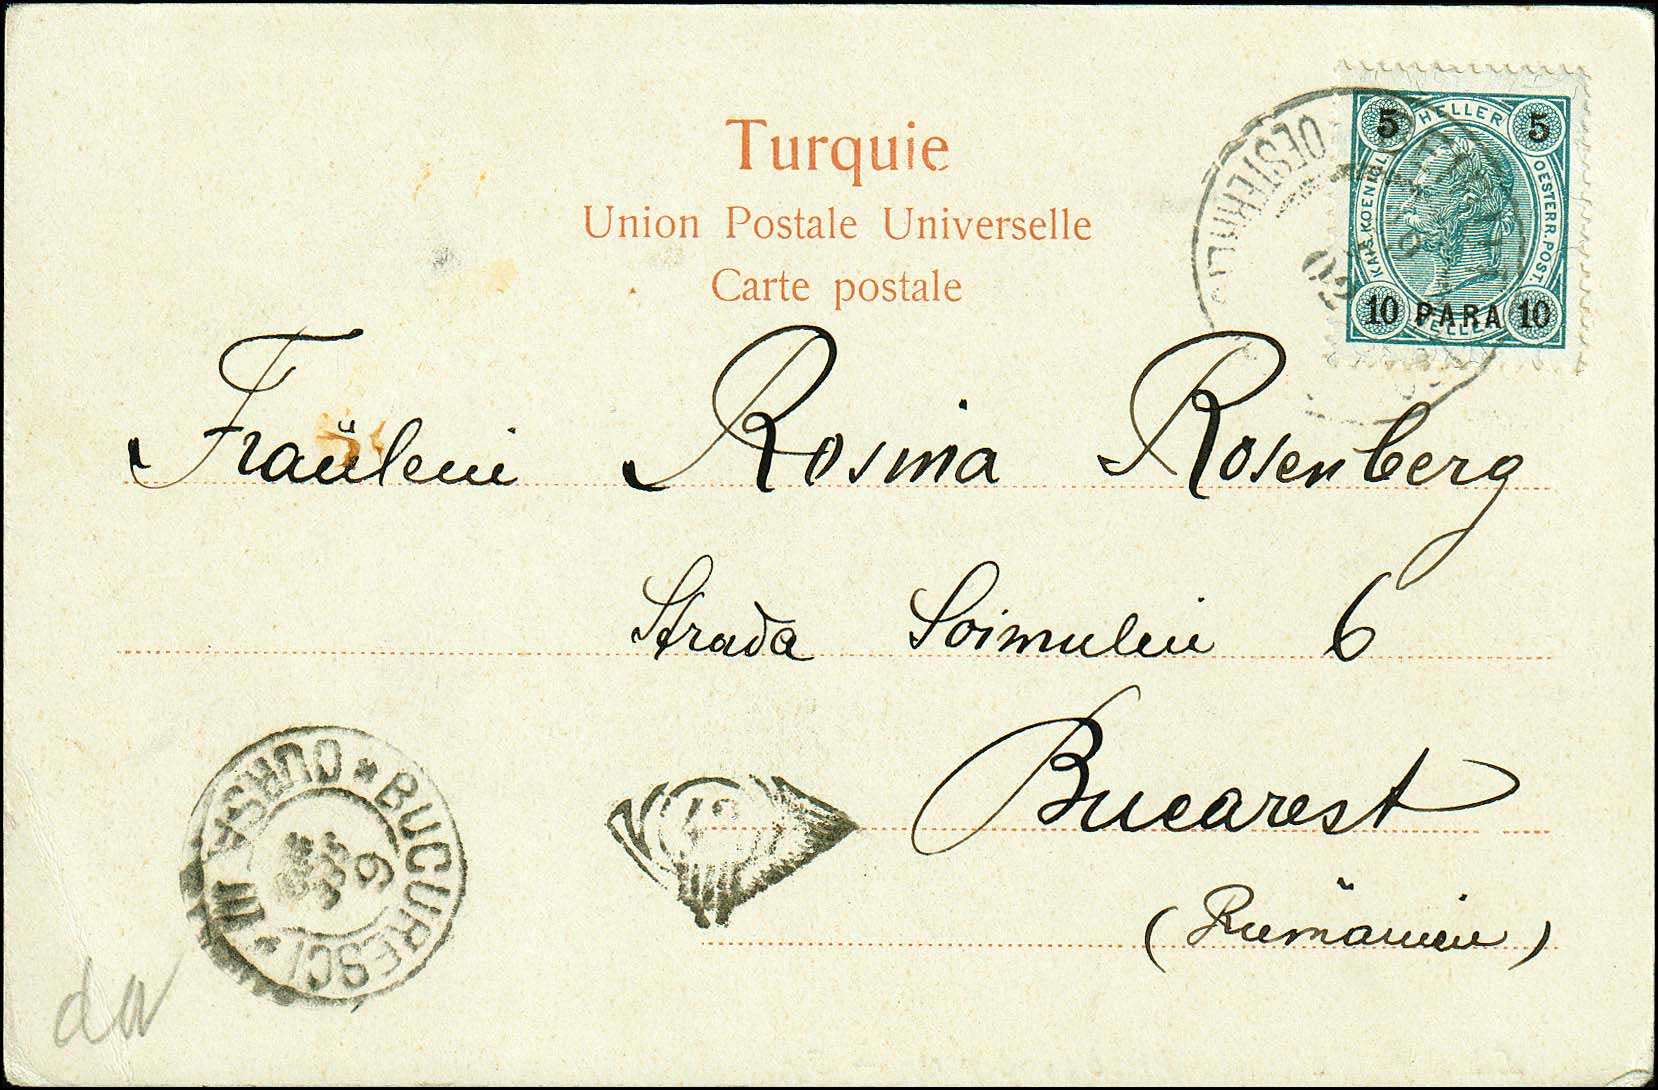 Turquie
Union Postale Universelle
Carte postale
5 HELLER 5
KAIS. KOENIGL. OESTERR. POST.
10 PARA 10
HELLER
OESTERR
02
Fräulein Rosina Rosenberg
Strada Soimului 6
Bucarest
(Rumänien)
* BUCURESCI * CURSA III
6
da